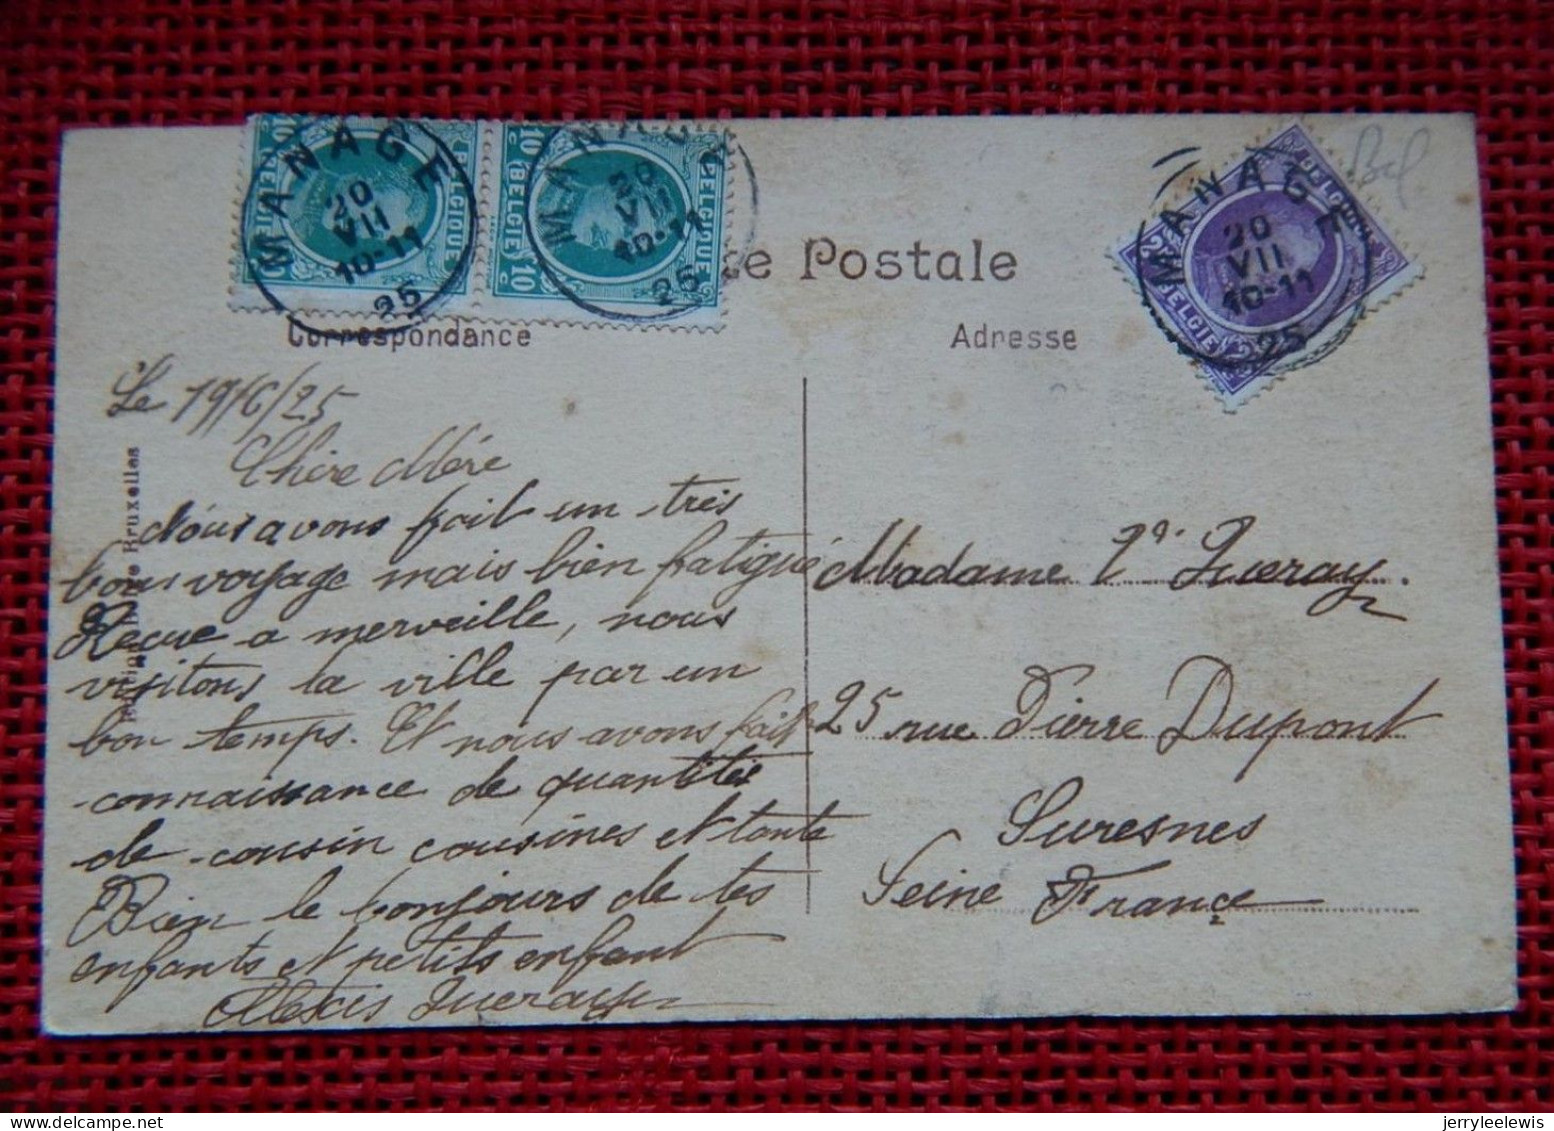 MANAGE
20
VII
10-11
25
10c BELGIE 10c
BELGIQUE
MANAGE
20
VII
10-11
25
BELGIQUE
BELGIE
MANAGE
20
VII
10-11
25
Bel
Postale
Correspondance
Adresse
Bruxelles
Le 19/6/25
Chère Mère
Nous avons fait un très
bons voyage mais bien fatigué
Recue a merveille, nous
visitons la ville par un
bon temps. Et nous avons fait
connaissance de quantitée
de cousin cousines et tante
Bien le bonjours de tes
enfants et petits enfant
Alexis Queray
Madame Queray.
25 rue Pierre Dupont
Suresnes
Seine France
jerryleelewis